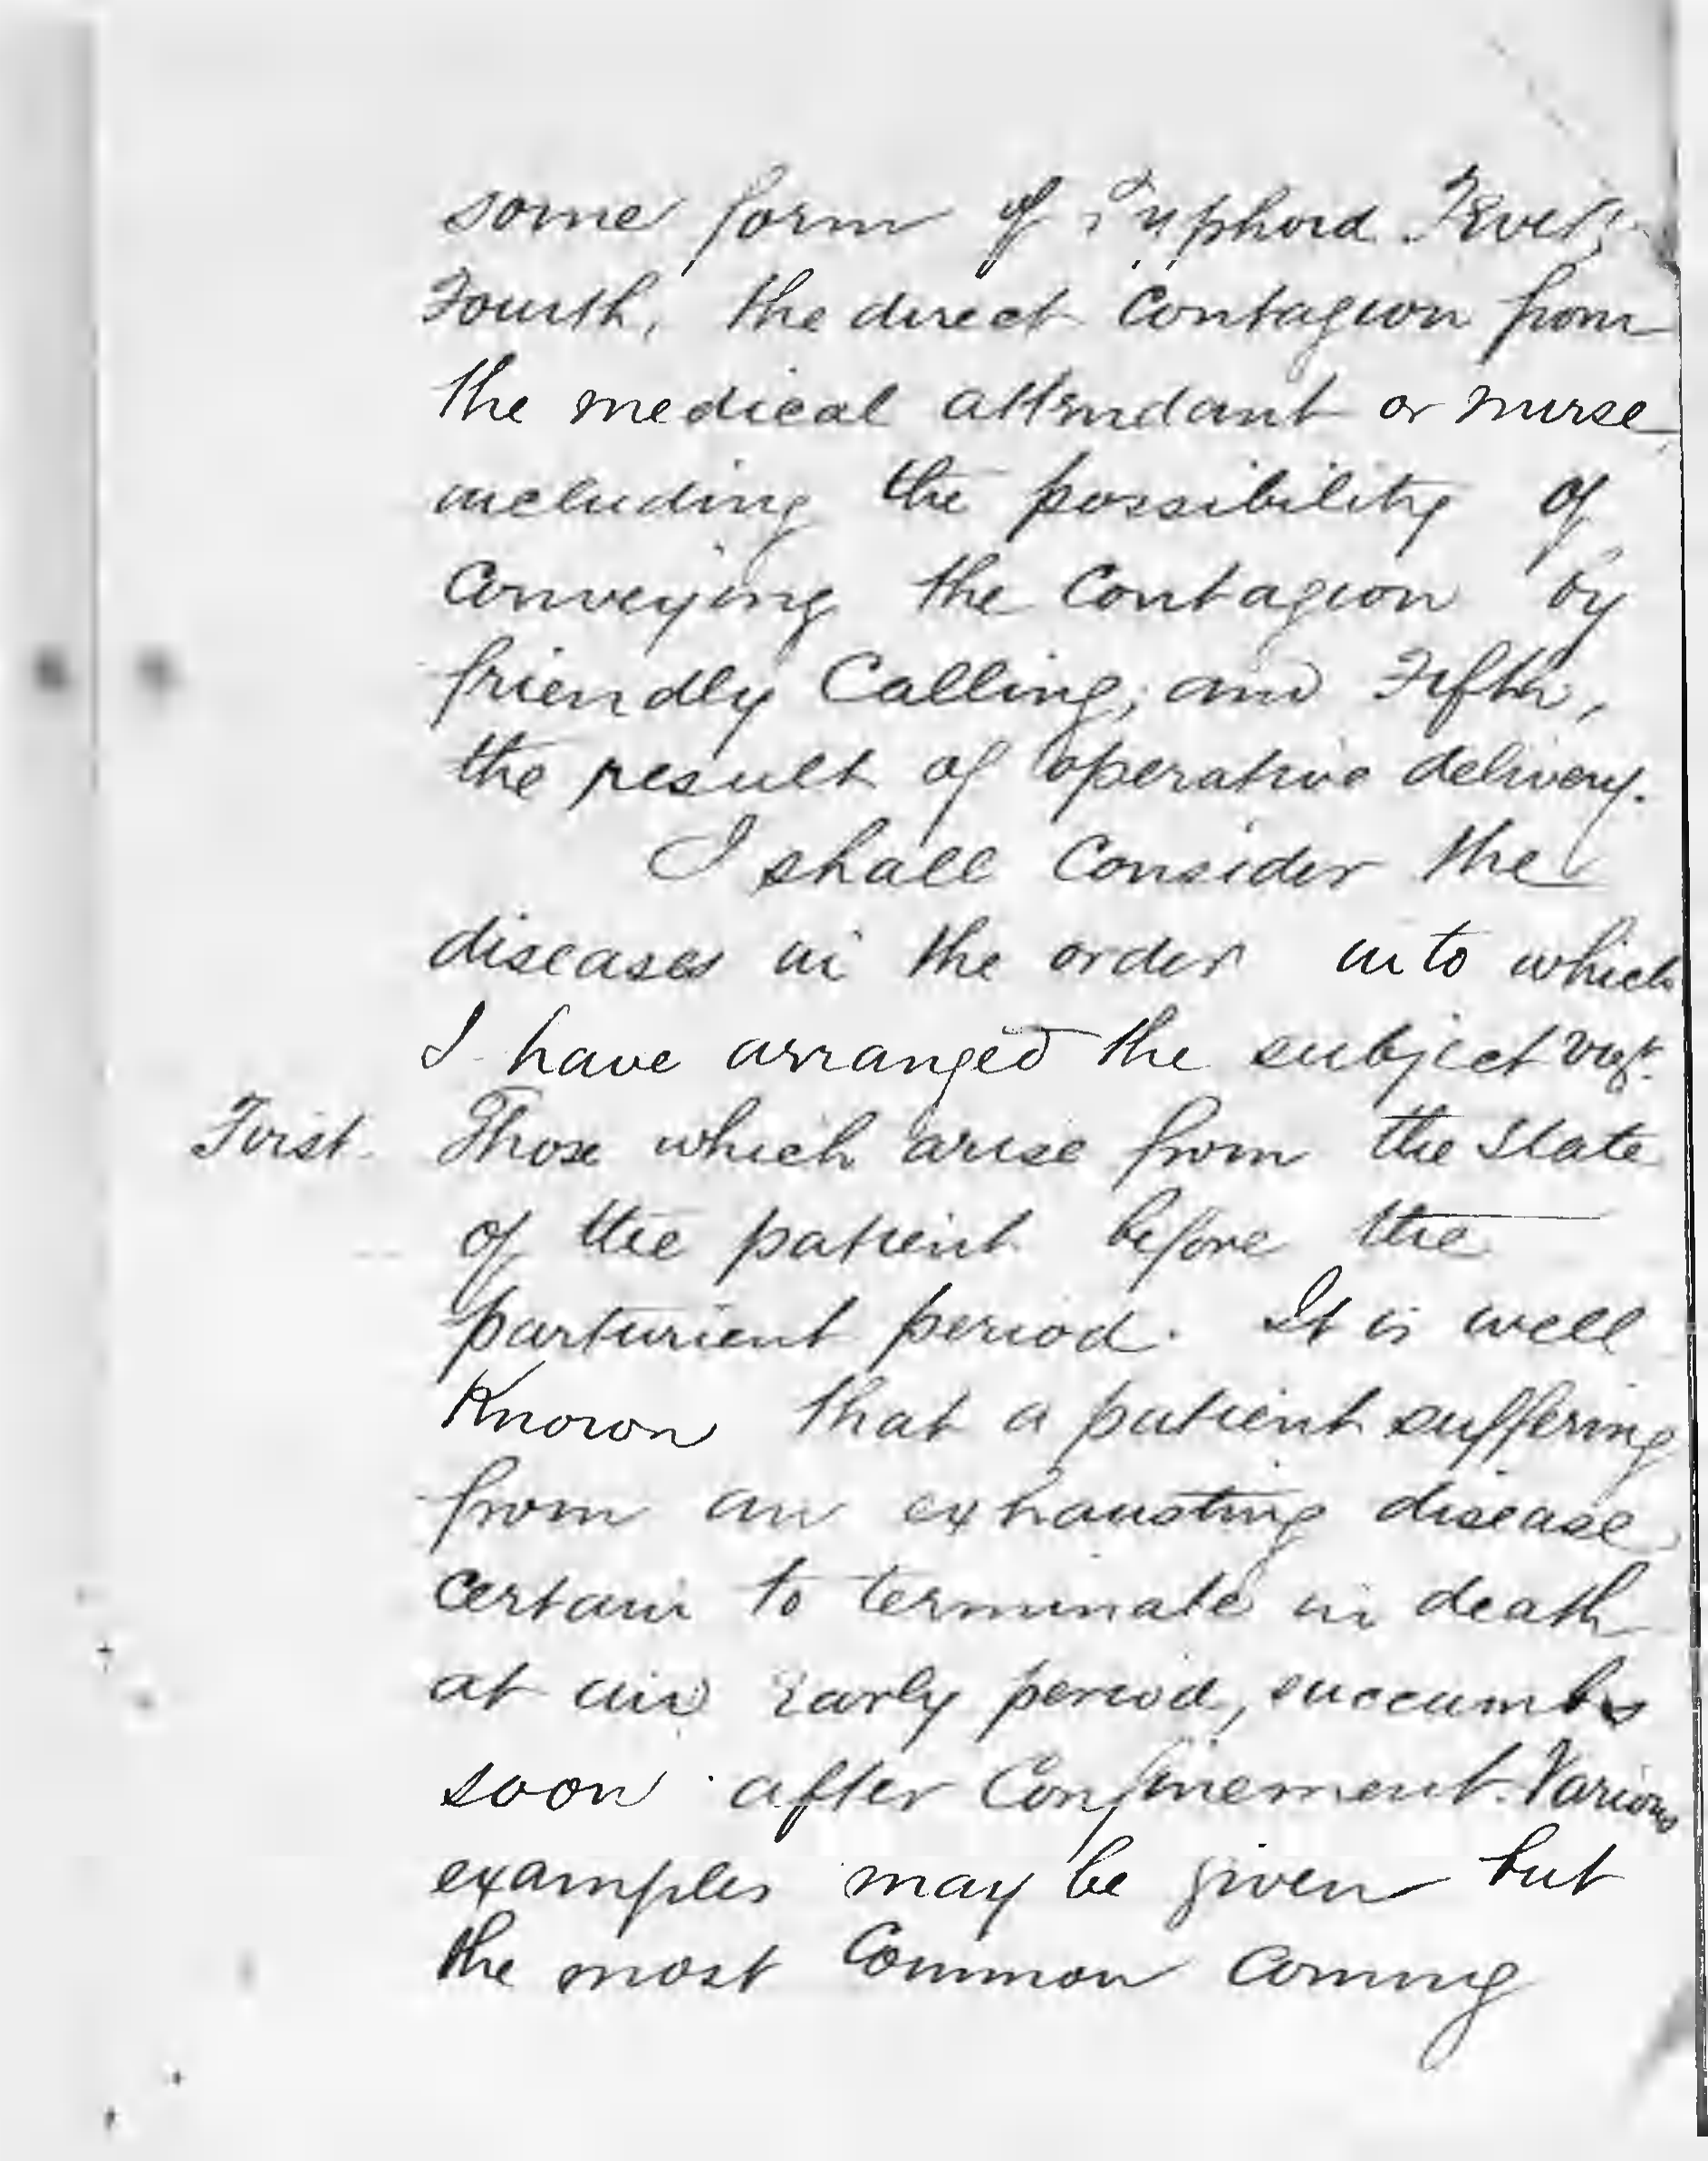 some form of Typhoid Fever;
Fourth, the direct Contagion from
the medical attendant or nurse,
including the possibility of
Conveying the Contagion by
friendly Calling; and Fifth,
the result of operative delivery.
I shall Consider the
diseases in the order into which
I have arranged the subject viz.
First. Those which arise from the State
of the patient before the
parturient period. It is well
Known that a patient suffering
from an exhausting disease
certain to terminate in death
at an Early period, succumbs
soon after Confinement. Various
examples may be given but
the most Common Coming